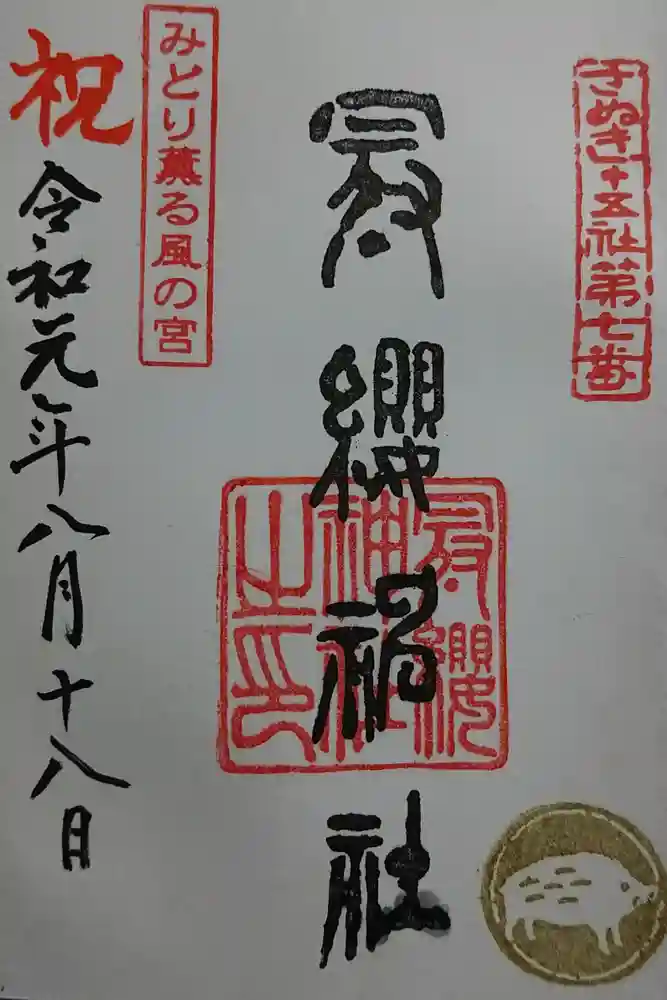 さぬき十五社第七番
冠纓神社
冠纓
神社
之印
みとり薫る風の宮
祝
令和元年八月十八日